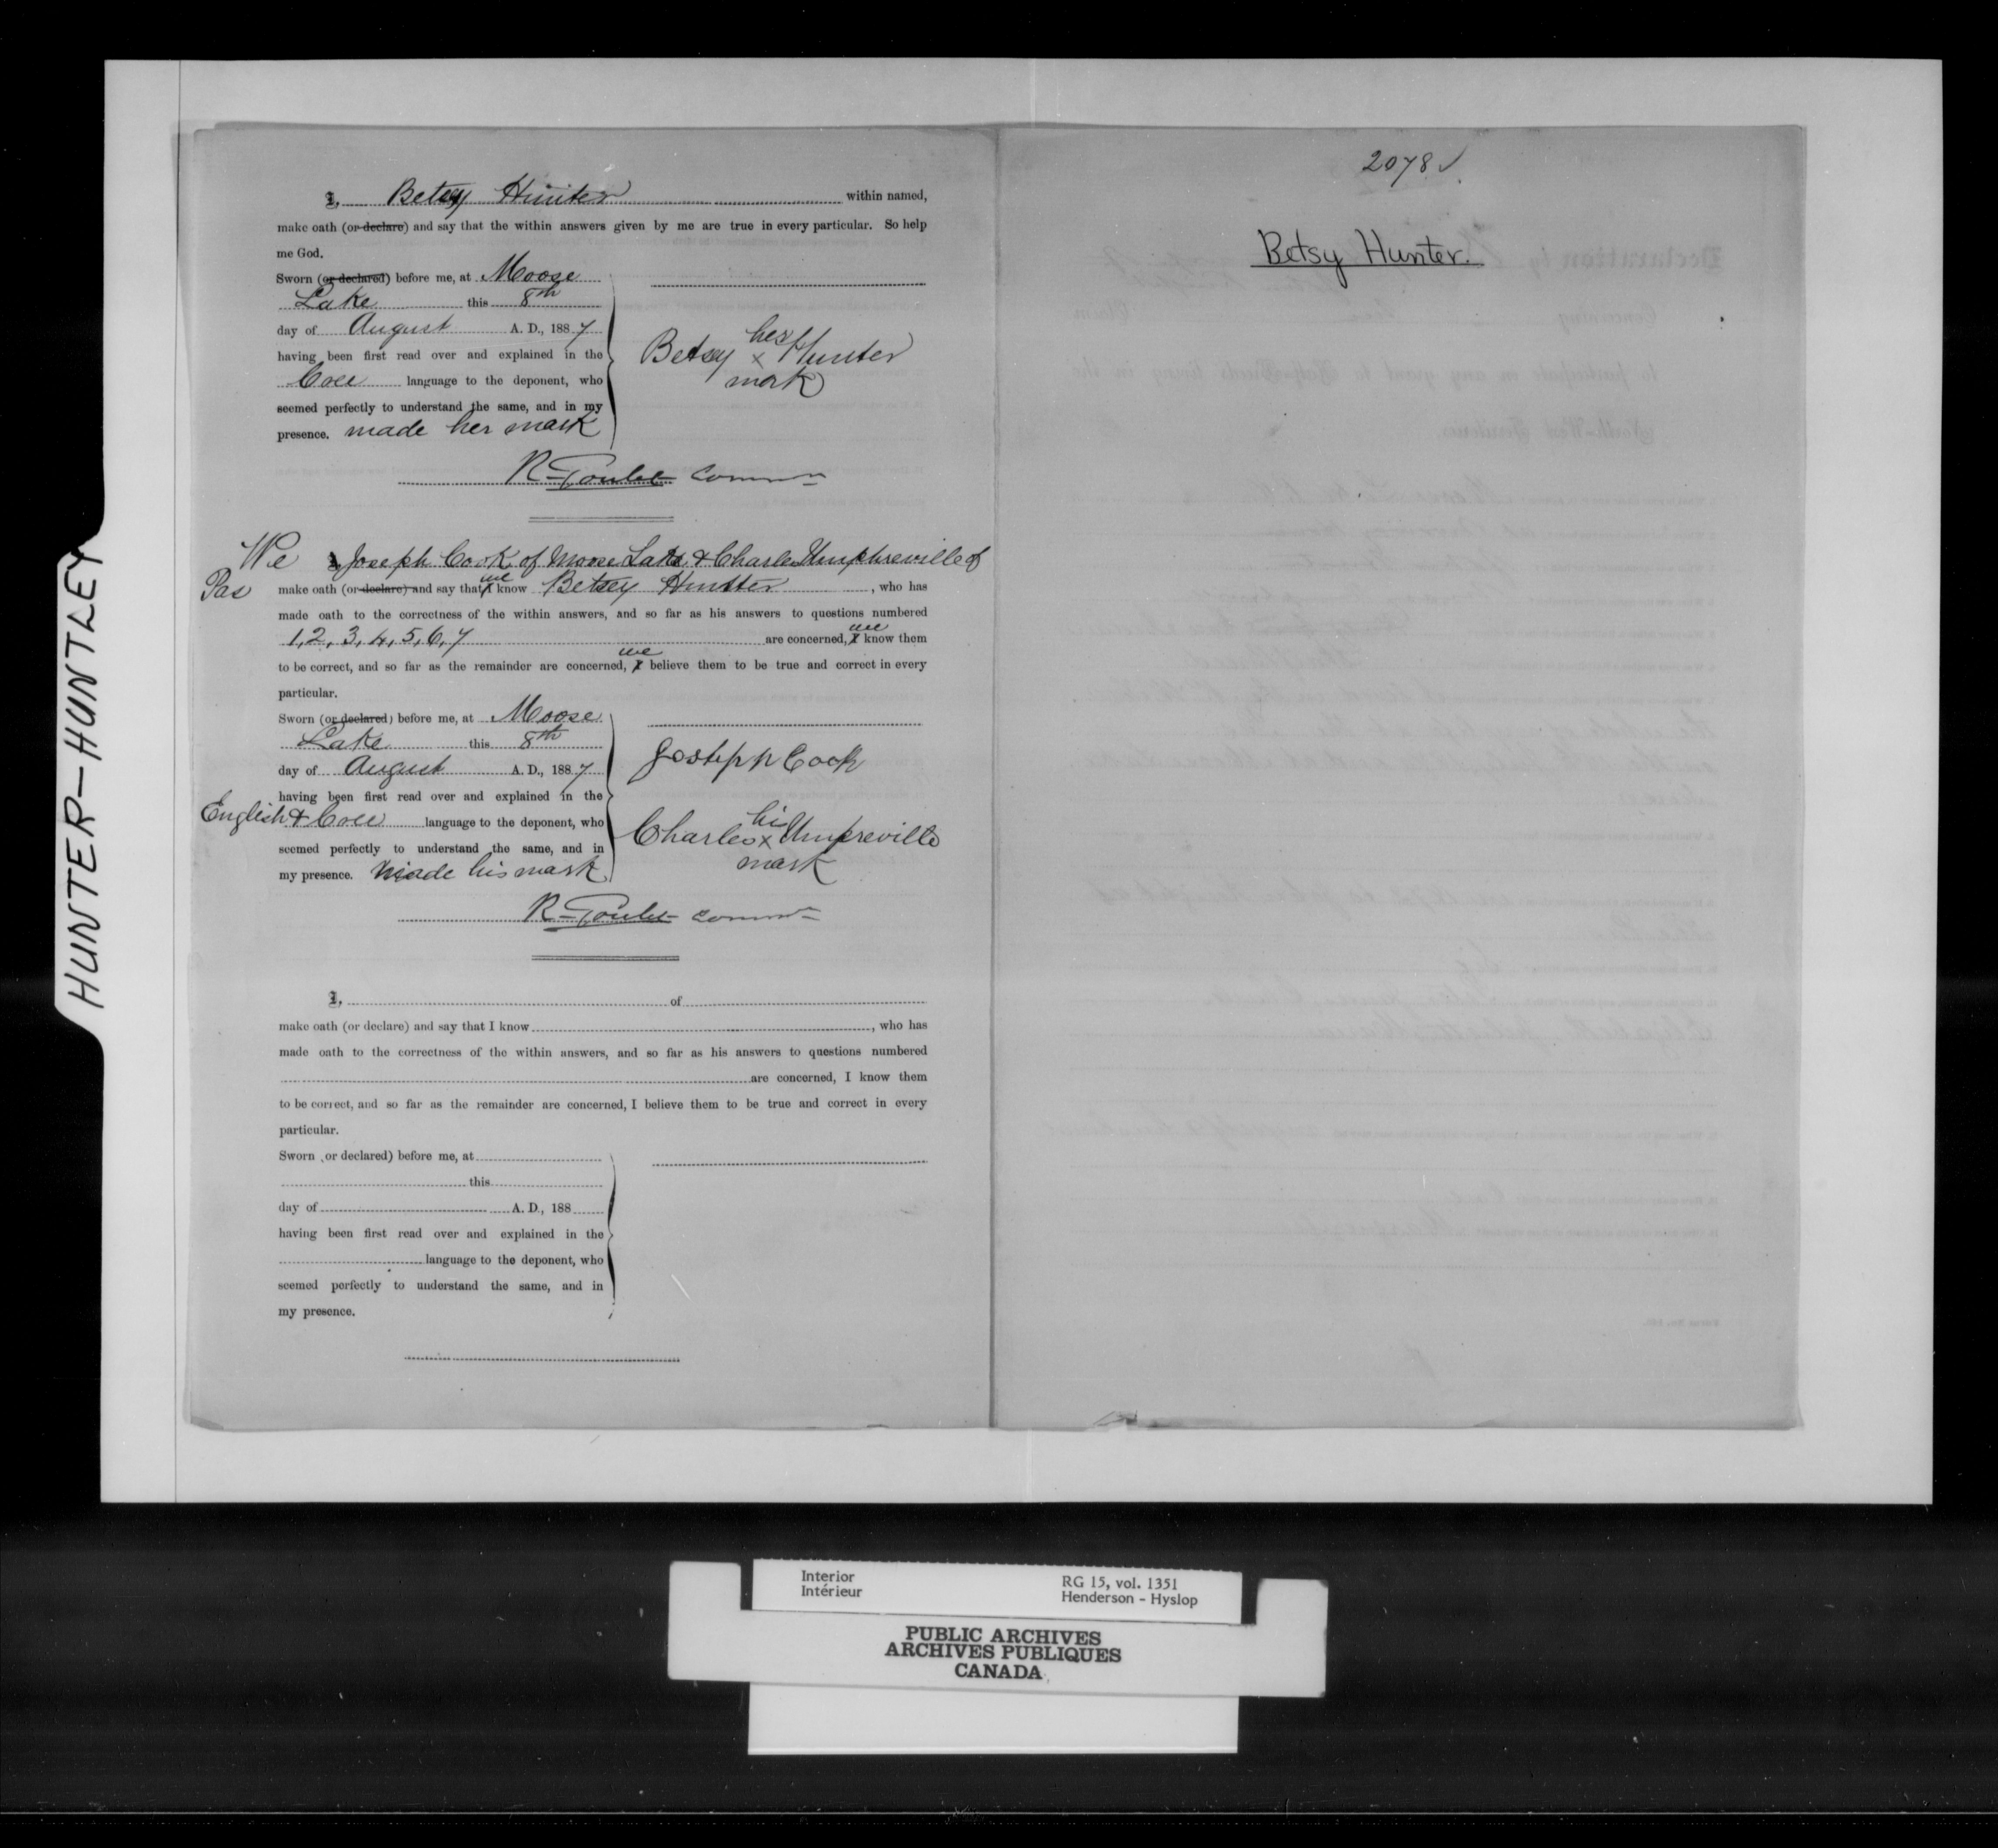 HUNTER-HUNTLEY
I, Betsy Hunter within named,
make oath (or declare) and say that the within answers given by me are true in every particular. So help
me God.
Sworn (or declared) before me, at Moose
Lake this 8th
day of August A. D., 1887
having been first read over and explained in the
Cree language to the deponent, who
seemed perfectly to understand the same, and in my
presence. made her mark
her
Betsy x Hunter
mark
R. Goulet Commr
We I, Joseph Cook of Moose Lake & Charles Umphreville of
Pas make oath (or declare) and say that I we know Betsey Hunter, who has
made oath to the correctness of the within answers, and so far as his answers to questions numbered
1, 2, 3, 4, 5, 6, 7 are concerned, I we know them
to be correct, and so far as the remainder are concerned, I we believe them to be true and correct in every
particular.
Sworn (or declared) before me, at Moose
Lake this 8th
day of August A. D., 1887
having been first read over and explained in the
English & Cree language to the deponent, who
seemed perfectly to understand the same, and in
my presence. made his mark
Joseph Cook
his
Charles x Umpreville
mark
R. Goulet Commr
I, of
make oath (or declare) and say that I know , who has
made oath to the correctness of the within answers, and so far as his answers to questions numbered
are concerned, I know them
to be correct, and so far as the remainder are concerned, I believe them to be true and correct in every
particular.
Sworn (or declared) before me, at
this
day of A. D., 188
having been first read over and explained in the
language to the deponent, who
seemed perfectly to understand the same, and in
my presence.
2078 ✓
Betsy Hunter.
Interior
Intérieur
RG 15, vol. 1351
Henderson - Hyslop
PUBLIC ARCHIVES
ARCHIVES PUBLIQUES
CANADA